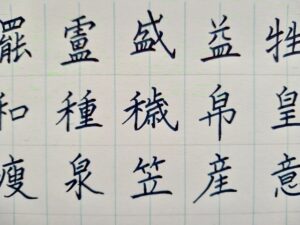 盛 益 牲
和 種 穢 帛 皇
瘦 泉 笠 産 意